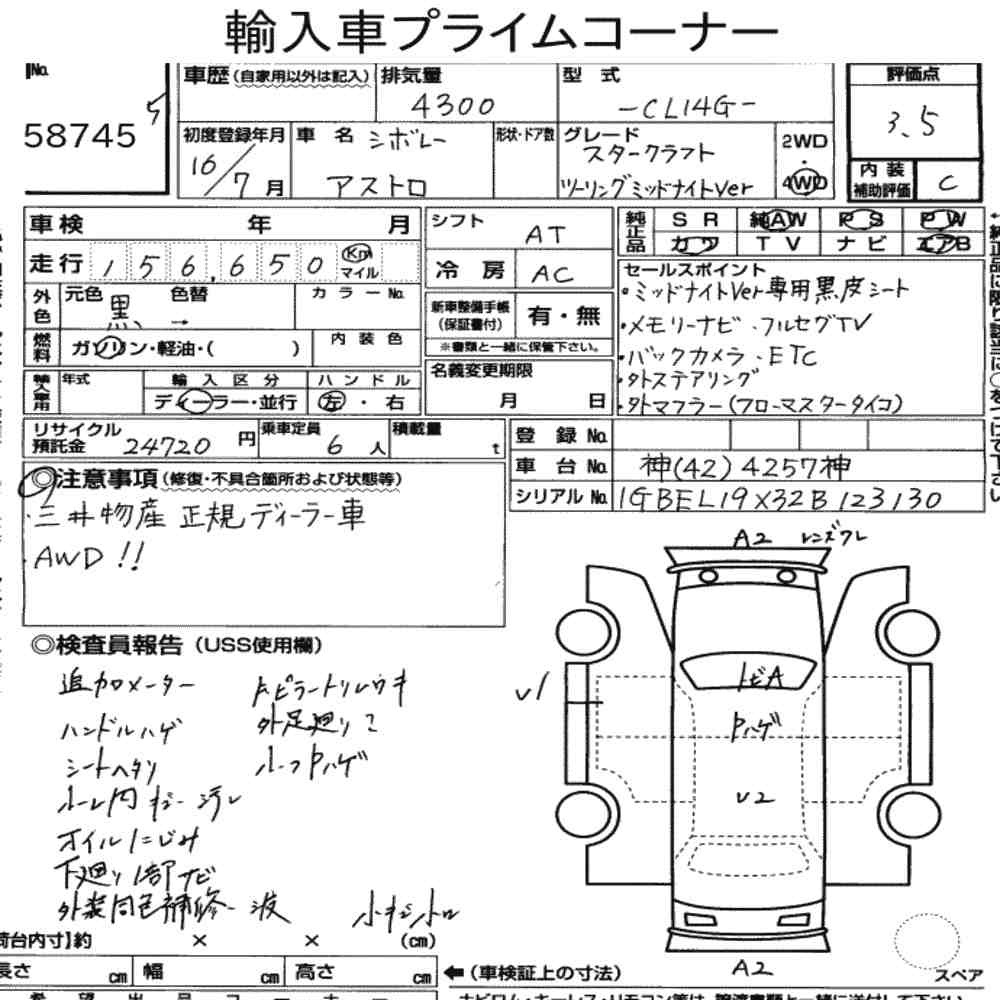 輸入車プライムコーナー
No.
58745
車歴(自家用以外は記入)
排気量 4300
型式 -CL14G-
評価点 3.5
初度登録年月 16/7月
車名 シボレー アストロ
形状・ドア数
グレード スタークラフト
ツーリングミッドナイトVer
2WD・4WD
内装補助評価 C
車検 年 月
シフト AT
純正品 SR 純AW PS PW
カワ TV ナビ エアB
走行 156,650 Km マイル
冷房 AC
外色 元色 黒 → 色替 カラーNo.
新車整備手帳(保証書付) 有・無
※書類と一緒に保管下さい。
燃料 ガソリン・軽油・( ) 内装色
輸入車用 年式 輸入区分 ハンドル
ディーラー・並行 左・右
名義変更期限 月 日
セールスポイント
・ミッドナイトVer専用黒皮シート
・メモリーナビ・フルセグTV
・バックカメラ・ETC
・外ステアリング
・外マフラー(フローマスタータイコ)
リサイクル預託金 24720円
乗車定員 6人
積載量 t
登録No.
車台No. 神(42)4257神
シリアルNo. 1GBEL19X32B123130
◎注意事項(修復・不具合箇所および状態等)
三井物産 正規ディーラー車
AWD!!
◎検査員報告(USS使用欄)
追加メーター
ハンドルハゲ
シートヘタリ
オイルにじみ
下廻り1部サビ
外装同色補修 波
小キズ
A2 レンズワレ
トビA
Pハゲ
U1
U2
A2
スペア
荷台内寸】約 × × (cm)
長さ cm 幅 cm 高さ cm
←(車検証上の寸法)